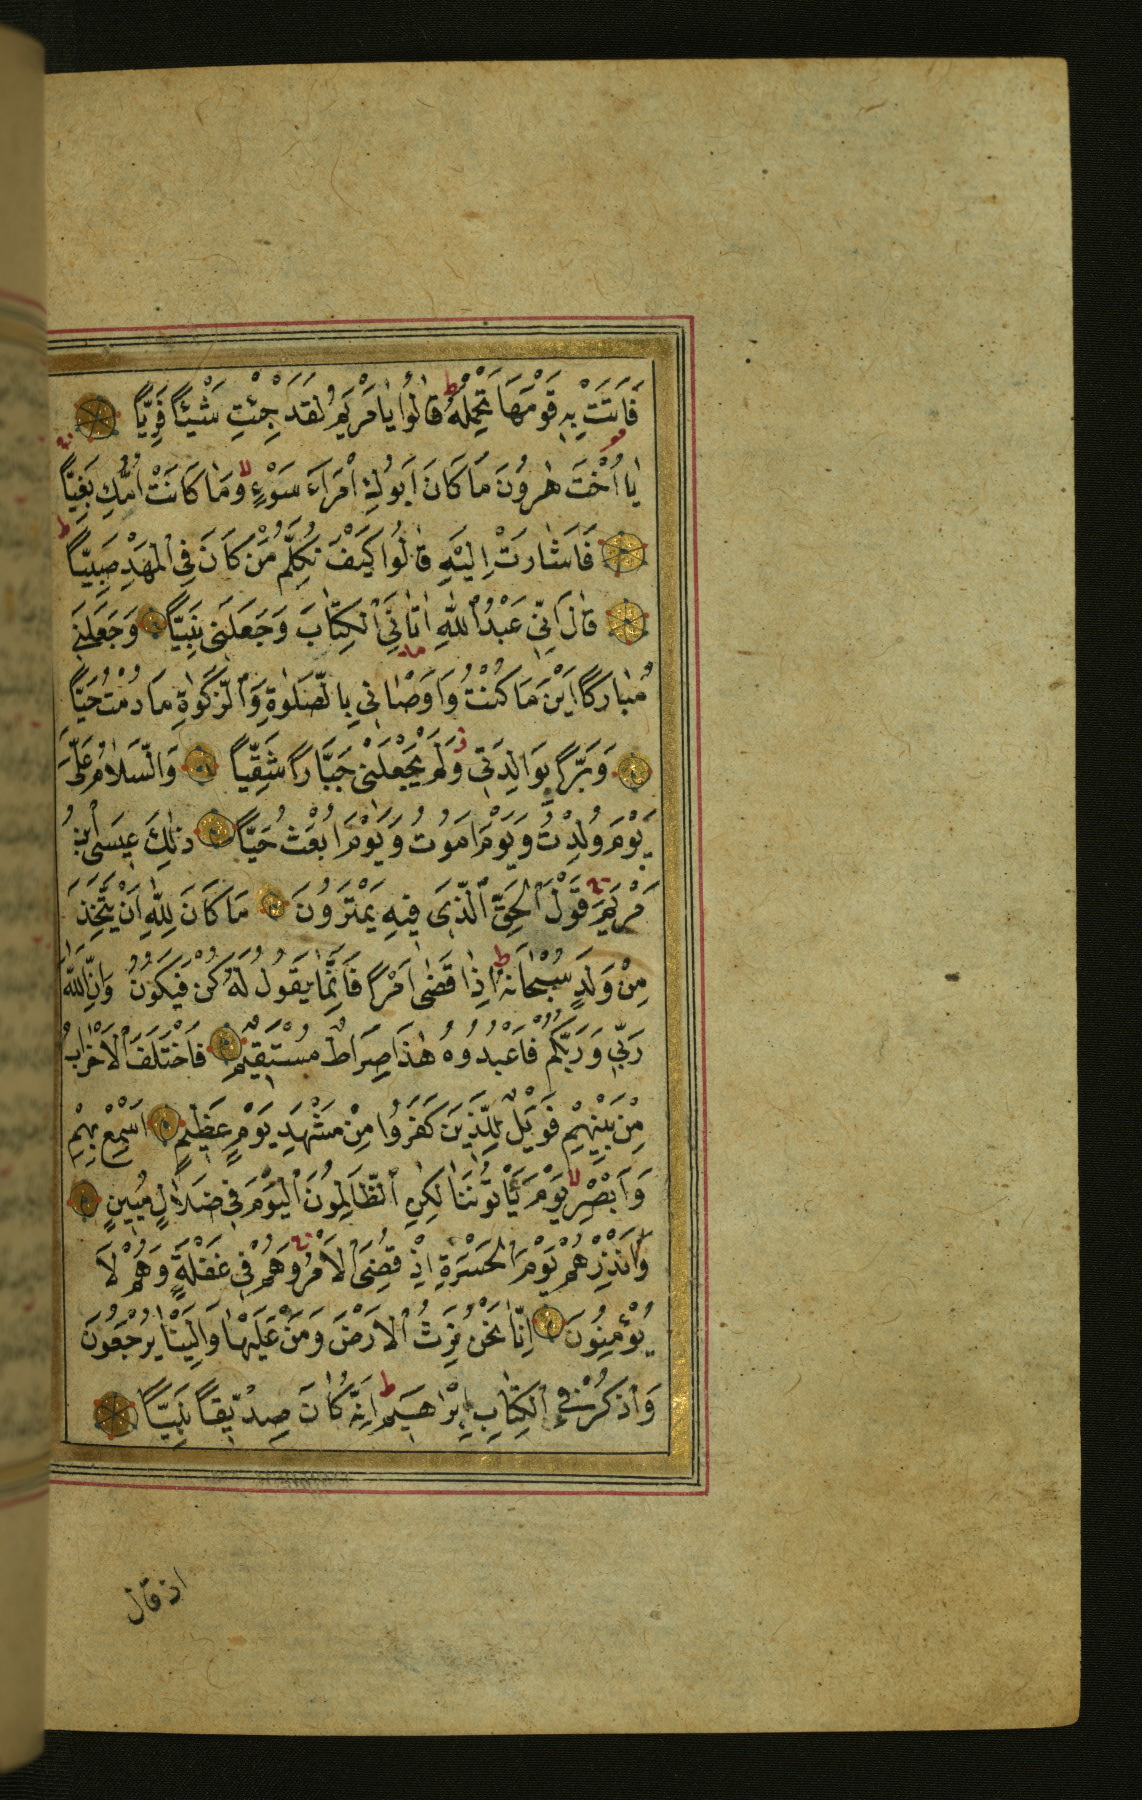 فَاَتَتْ بِهٖ قَوْمَهَا تَحْمِلُهُ ط قَالُوا يَا مَرْيَمُ لَقَدْ جِئْتِ شَيْئًا فَرِيًّا
يَا اُخْتَ هٰرُونَ مَا كَانَ اَبُوكِ امْرَاَ سَوْءٍ لا وَمَا كَانَتْ اُمُّكِ بَغِيًّا
فَاَشَارَتْ اِلَيْهِ قَالُوا كَيْفَ نُكَلِّمُ مَنْ كَانَ فِى الْمَهْدِ صَبِيًّا ط
قَالَ اِنِّى عَبْدُ اللّٰهِ اٰتَانِىَ الْكِتَابَ وَجَعَلَنِى نَبِيًّا وَجَعَلَنِى
مُبَارَكًا اَيْنَ مَا كُنْتُ وَاَوْصَانِى بِالصَّلٰوةِ وَالزَّكٰوةِ مَا دُمْتُ حَيًّا
وَبَرًّا بِوَالِدَتِى ز وَلَمْ يَجْعَلْنِى جَبَّارًا شَقِيًّا وَالسَّلَامُ عَلَىَّ
يَوْمَ وُلِدْتُ وَيَوْمَ اَمُوتُ وَيَوْمَ اُبْعَثُ حَيًّا ذٰلِكَ عِيسَى ابْنُ
مَرْيَمَ قَوْلَ الْحَقِّ الَّذِى فِيهِ يَمْتَرُونَ مَا كَانَ لِلّٰهِ اَنْ يَتَّخِذَ
مِنْ وَلَدٍ سُبْحَانَهُ ط اِذَا قَضٰى اَمْرًا فَاِنَّمَا يَقُولُ لَهُ كُنْ فَيَكُونُ وَاِنَّ اللّٰهَ
رَبِّى وَرَبُّكُمْ فَاعْبُدُوهُ هٰذَا صِرَاطٌ مُسْتَقِيمٌ فَاخْتَلَفَ الْاَحْزَابُ
مِنْ بَيْنِهِمْ فَوَيْلٌ لِلَّذِينَ كَفَرُوا مِنْ مَشْهَدِ يَوْمٍ عَظِيمٍ اَسْمِعْ بِهِمْ
وَاَبْصِرْ لا يَوْمَ يَأْتُونَنَا لٰكِنِ الظَّالِمُونَ الْيَوْمَ فِى ضَلَالٍ مُبِينٍ
وَاَنْذِرْهُمْ يَوْمَ الْحَسْرَةِ اِذْ قُضِىَ الْاَمْرُ وَهُمْ فِى غَفْلَةٍ وَهُمْ لَا
يُؤْمِنُونَ اِنَّا نَحْنُ نَرِثُ الْاَرْضَ وَمَنْ عَلَيْهَا وَاِلَيْنَا يُرْجَعُونَ
وَاذْكُرْ فِى الْكِتَابِ اِبْرَاهِيمَ ط اِنَّهُ كَانَ صِدِّيقًا نَبِيًّا
اذ قال